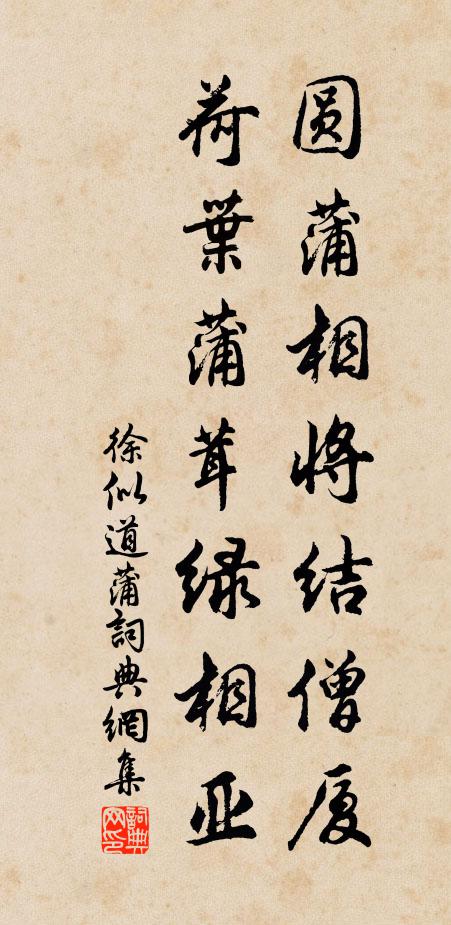 圆蒲相将结僧厦
荷葉蒲茸绿相亚
徐似道蒲詞典網集
詞典网印